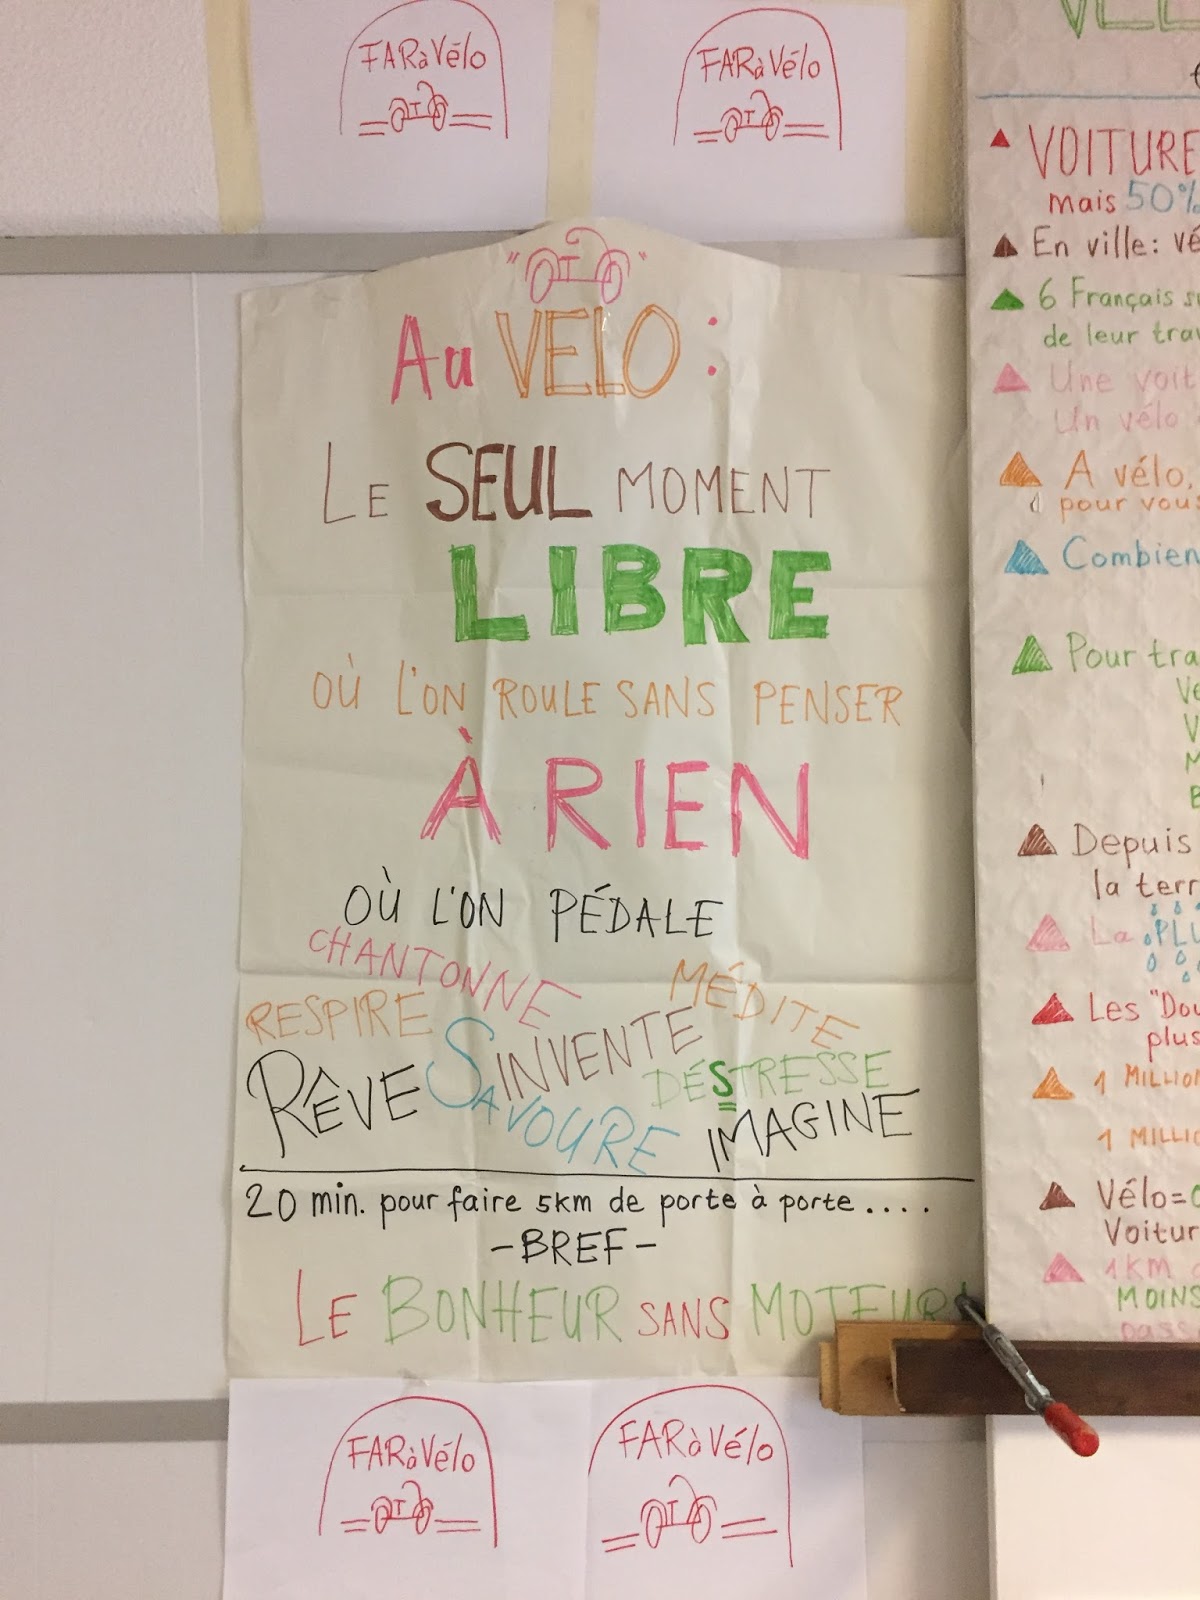 FARàVélo
FARàVélo
Au VELO :
LE SEUL MOMENT
LIBRE
OÙ L'ON ROULE SANS PENSER
À RIEN
OÙ L'ON PÉDALE
CHANTONNE
MÉDITE
RESPIRE
INVENTE
RÊVE
DÉSTRESSE
SAVOURE
IMAGINE
20 min. pour faire 5km de porte à porte ....
-BREF-
LE BONHEUR SANS MOTEUR!
FARàVélo
FARàVélo
VOITURE
mais 50%
En ville: vé
6 Français su
de leur trav
Une voit
Un vélo
A vélo,
pour vous
Combien
Pour tra
Depuis
la terr
La PLU
Les "Dou
plus
1 MILLION
1 MILLIO
Vélo=0
Voitur
1km
MOINS